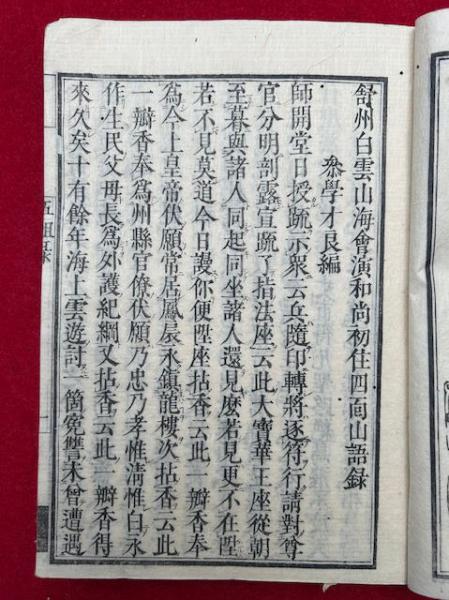 舒州白雲山海會演和尚初住四面山語録
叅學才良編
師開堂日授䟽示衆云兵隨印轉將逐符行請對尊
官分明剖露宣䟽了指法座云此大寶華王座從朝
至暮與諸人同起同坐諸人還見麽若見更不在陞
若不見莫道今日謾你便陞座拈香云此一瓣香奉
為今上皇帝伏願常居鳳扆永鎮龍樓次拈香云此
一瓣香奉爲州縣官僚伏願乃忠乃孝惟清惟白永
作生民父母長爲外護紀綱又拈香云此一瓣香得
來久矣十有餘年海上雲遊討一箇寃讐未曾遭遇
五祖录